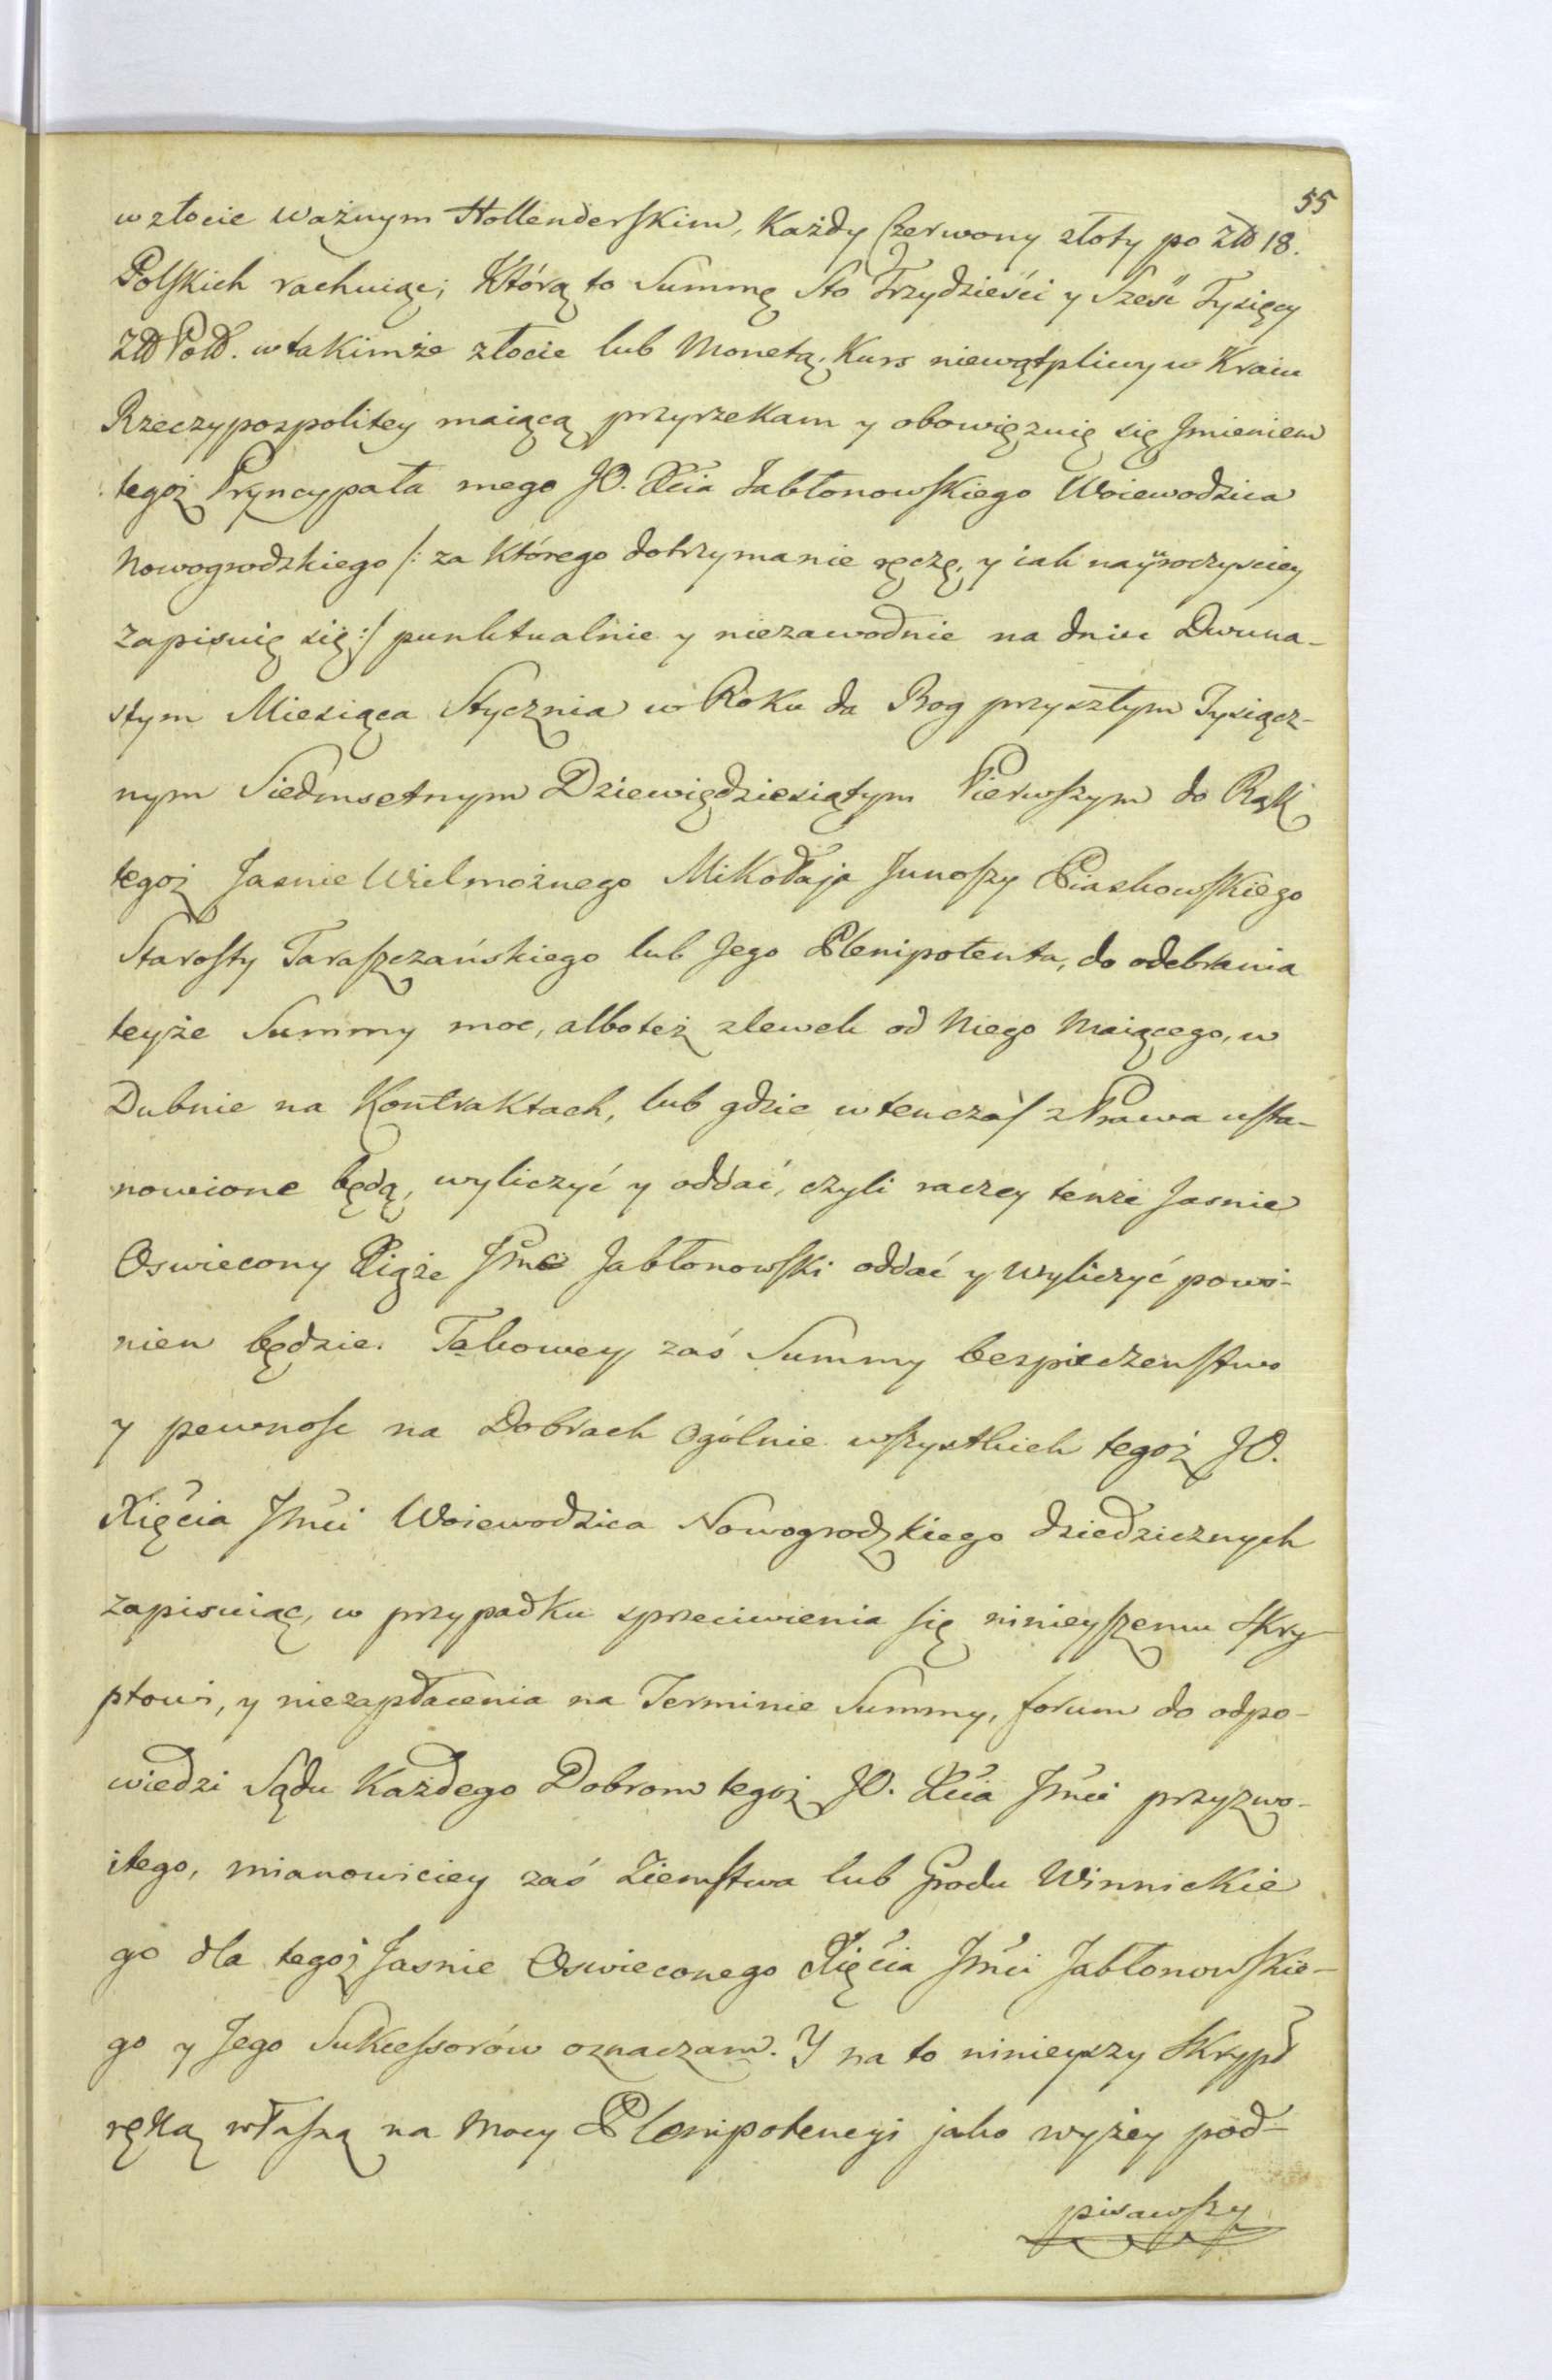 55
w złocie ważnym Hollenderskim, Każdy Czerwony złoty po Złł 18.
Polskich rachuiąc; Którą to Summę Sto Trzydzieści y Sześć Tysięcy
Złł Poll. w takimże złocie lub Monetą, Kurs niewątpliwy w Kraiu
Rzeczypospolitey maiącą przyrzekam y obowięzuię się Jmieniem
tegoż Pryncypała mego JO. Xcia Jabłonowskiego Woiewodzica
Nowogrodzkiego /: za Którego dotrzymanie ręczę, y iak nayuroczyściey
zapisuię się :/ punktualnie y niezawodnie na dniu Dwuna-
stym Miesiąca Stycznia w Roku da Bog przyszłym Tysiącz-
nym Siedmsetnym Dziewięдziesiątym Pierwszym do Rąk
tegoż Jasnie Wielmożnego Mikołaja Junoszy Piaskowskiego
Starosty Taraszczańskiego lub Jego Plenipotenta, do odebrania
teyże Summy moc, albo też zlewek od Niego Maiącego, w
Dubnie na Kontraktach, lub gdzie wtenczas z Prawa usta-
nowione będą, wyliczyć y oddać, czyli raczey tenże Jasnie
Oswiecony Xiąże Jmc Jabłonowski oddać y wyliczyć powi-
nien będzie. Takowey zaś Summy bezpieczenstwo
y pewnosc na Dobrach ogólnie wszystkich tegoż JO.
Xięcia Jmci Woiewodzica Nowogrodzkiego dziedzicznych
zapisuiąc, w przypadku sprzeciwienia się ninieyszemu Skry-
ptowi, y niezapłacenia na Terminie Summy, forum do odpo-
wiedzi Sądu Każdego Dobrom tegoż JO. Xcia Jmci przyzwo-
itego, mianowiciey zaś Ziemstwa lub Grodu Winnickie
go dla tegoż Jasnie Oswieconego Xięcia Jmci Jabłonowskie-
go y Jego Sukcessorów oznaczam. Y na to ninieyszy Skrypt
ręką własną na Mocy Plenipotencyi jako wyżey pod-
pisawszy